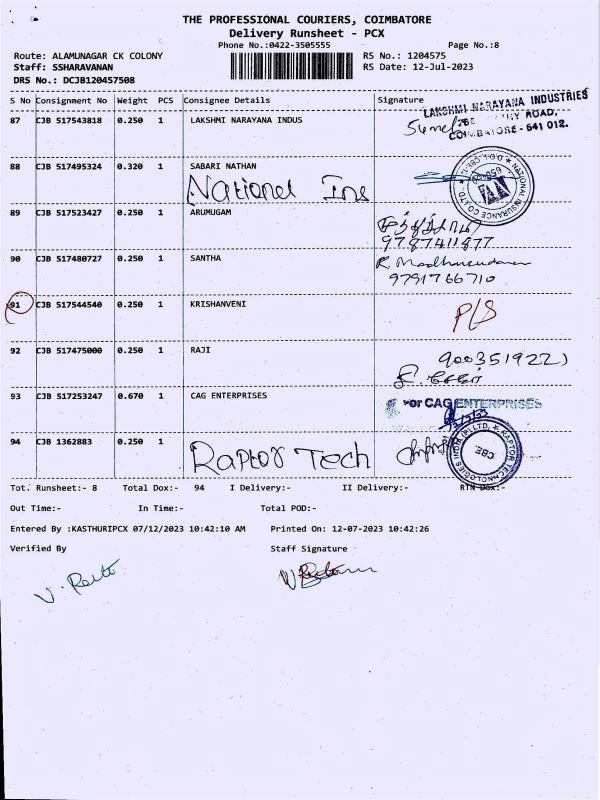 THE PROFESSIONAL COURIERS, COIMBATORE
Delivery Runsheet - PCX
Phone No.:0422-3505555 Page No.:8
Route: ALAMUNAGAR CK COLONY RS No.: 1204575
Staff: SSHARAVANAN RS Date: 12-Jul-2023
DRS No.: DCJB120457508
S No Consignment No Weight PCS Consignee Details Signature
LAKSHMI NARAYANA INDUSTRIES
87 CJB 517543818 0.250 1 LAKSHMI NARAYANA INDUS
ROAD,
COIMBATORE - 641 012.
88 CJB 517495324 0.320 1 SABARI NATHAN
National Ins
NATIONAL INSURANCE CO LTD.
89 CJB 517523427 0.250 1 ARUMUGAM
9787411877
90 CJB 517480727 0.250 1 SANTHA
R Madhusudanan
9791766710
91 CJB 517544540 0.250 1 KRISHANVENI
P/S
92 CJB 517475000 0.250 1 RAJI
93 CJB 517253247 0.670 1 CAG ENTERPRISES
For CAG ENTERPRISES
94 CJB 1362883 0.250 1
Raptor Tech
RAPTOR TECHNOLOGIES INDIA (P) LTD.
CBE
Tot. Runsheet:- 8 Total Dox:- 94 I Delivery:- II Delivery:- RTN Dox:-
Out Time:- In Time:- Total POD:-
Entered By :KASTHURIPCX 07/12/2023 10:42:10 AM Printed On: 12-07-2023 10:42:26
Verified By Staff Signature